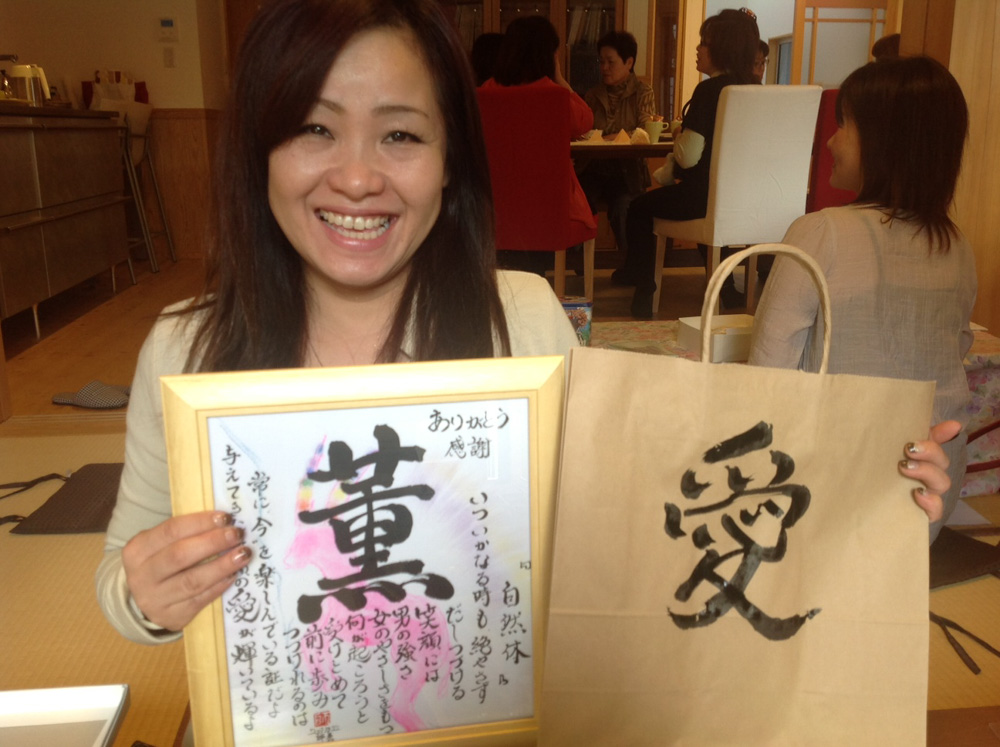 ありがとう
感謝
薫
自然体
いついかなる時も 絶やさず
だしつづける
笑顔には
男の強さ
女のやさしさをもつ
何が起ころうと
受けとめて
前に歩み
つづけれるのは
常に今を楽しんでいる証だよ
与えてき
の愛が輝いているよ
愛